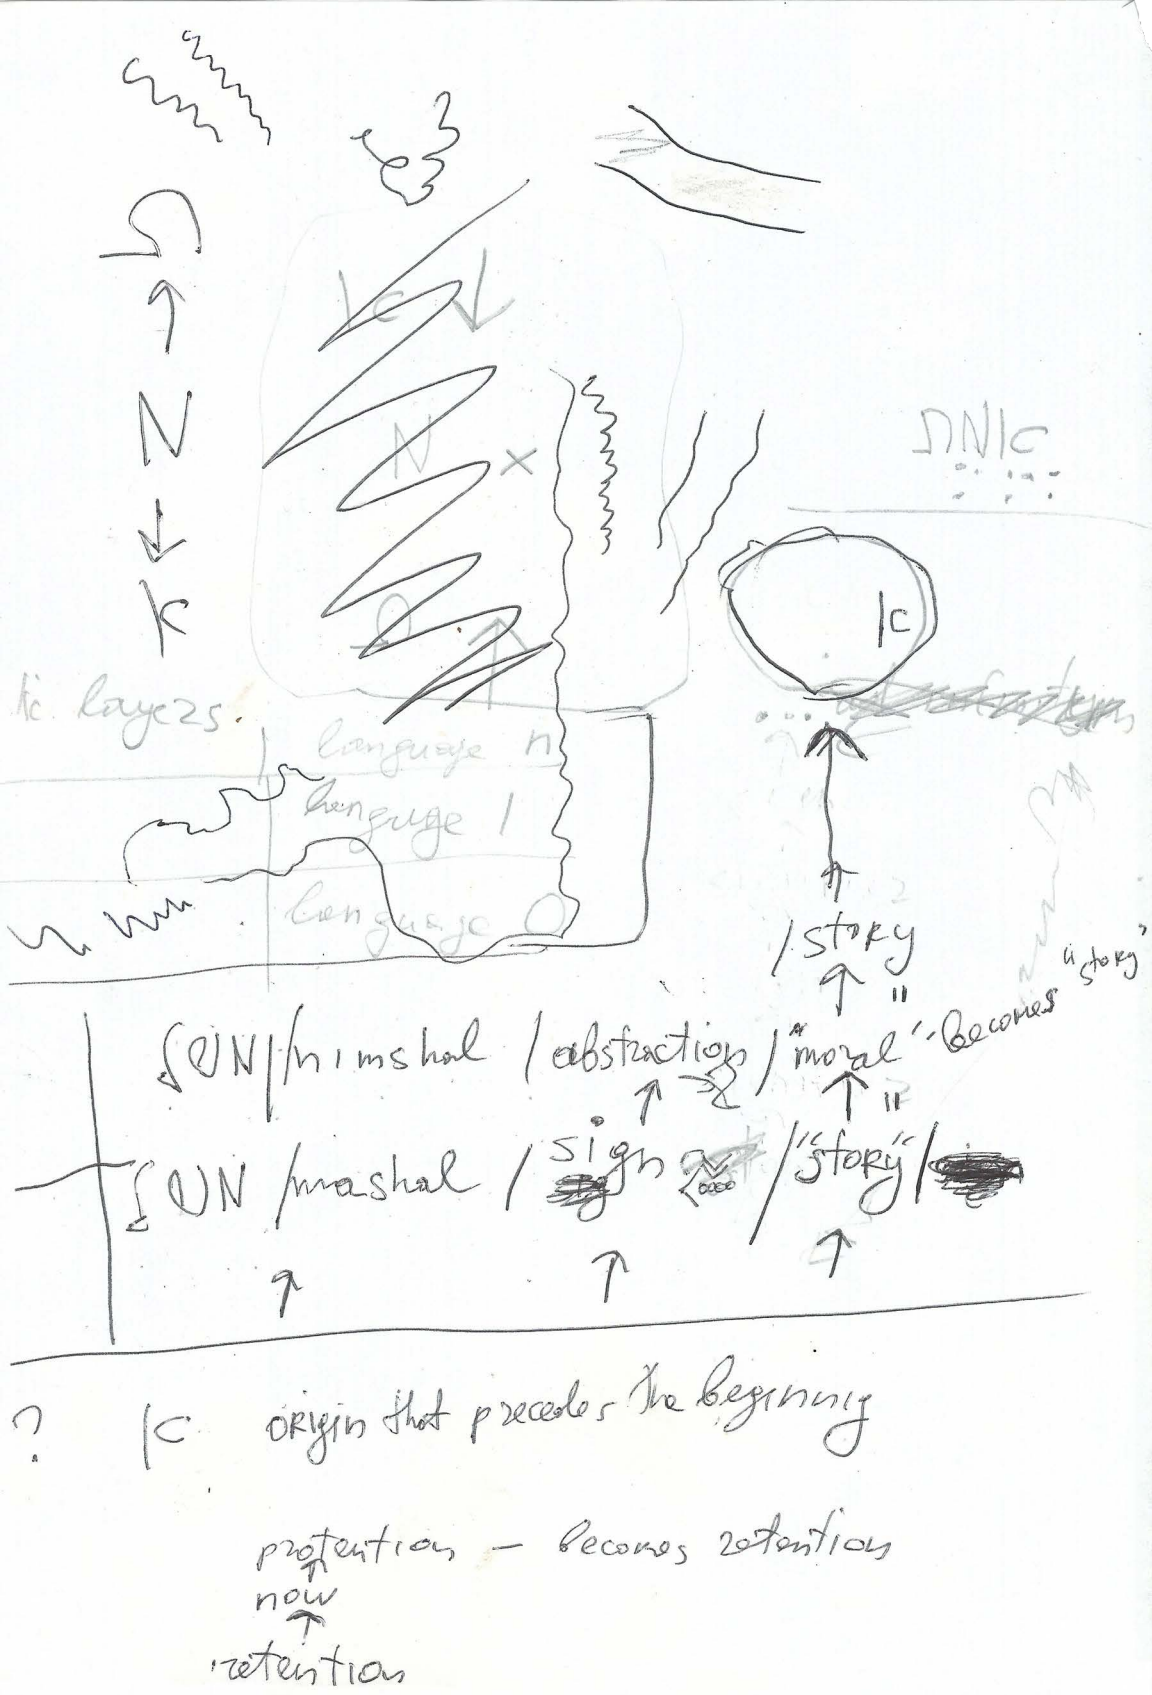 ת
↑
מ
↓
א
א ↓
מ x
ת ↑
אמת
א
layers
language n
language 1
language 0
/ story
↑ "
נמשל /nimshal /abstraction /"moral" - becomes "story"
↑ ↑ "
משל /mashal / sign /"story" /
↑ ↑ ↑
? א origin that precedes the beginning
protention – becomes retention
↑
now
↑
retention